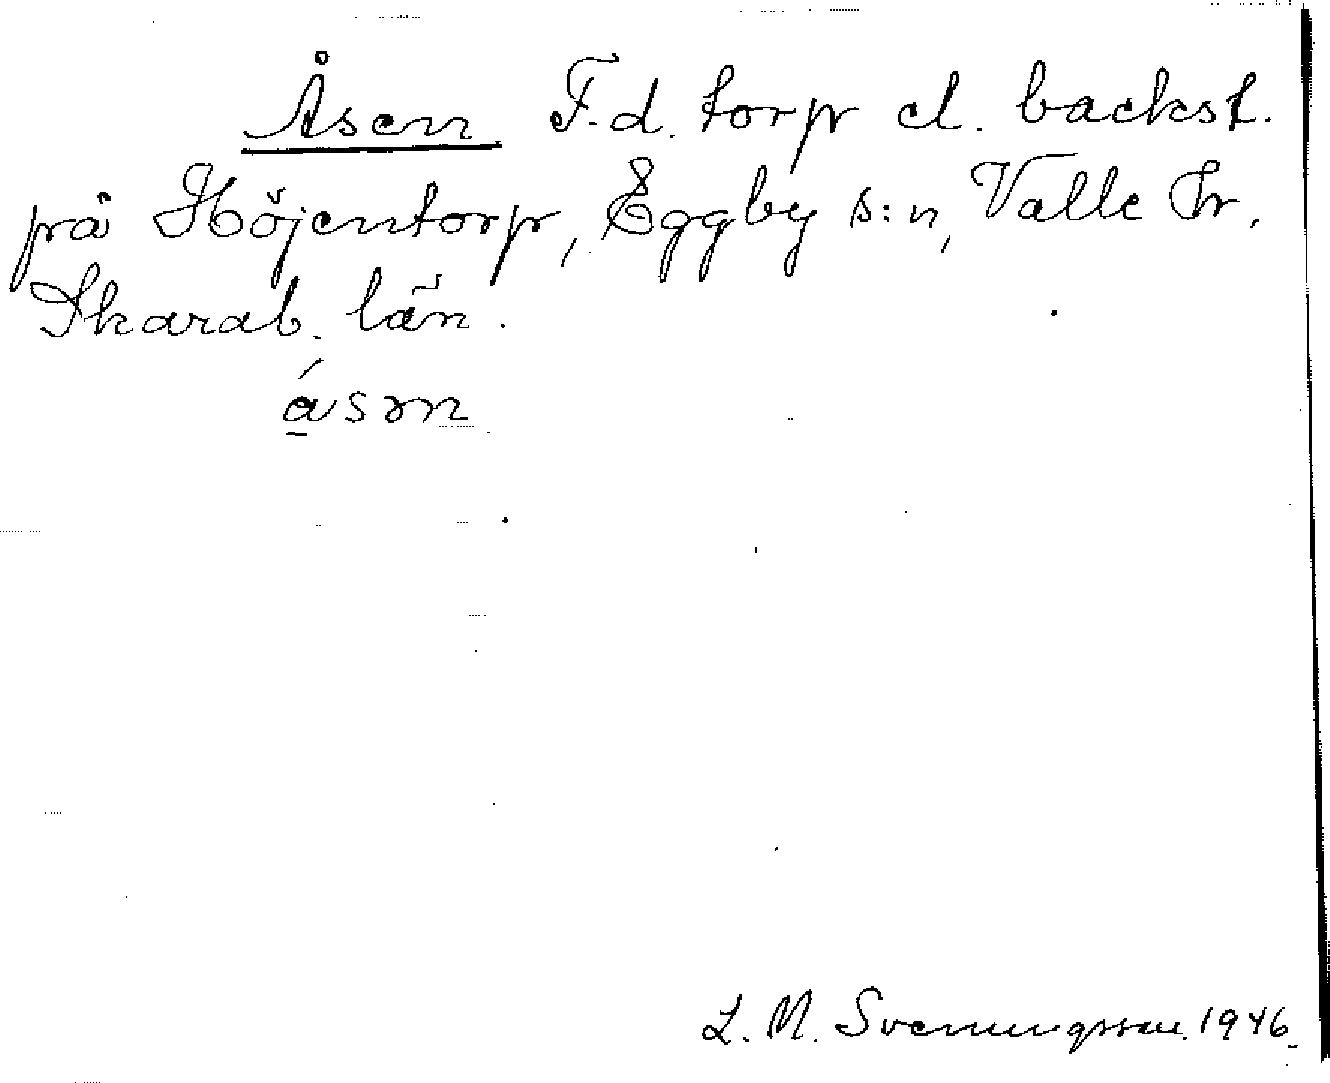 Åsen F.d. torp el. backst.
på Höjentorp, Eggby s:n, Valle hr.
Skarab. län.
ásən
L. M. Svenungsson 1946